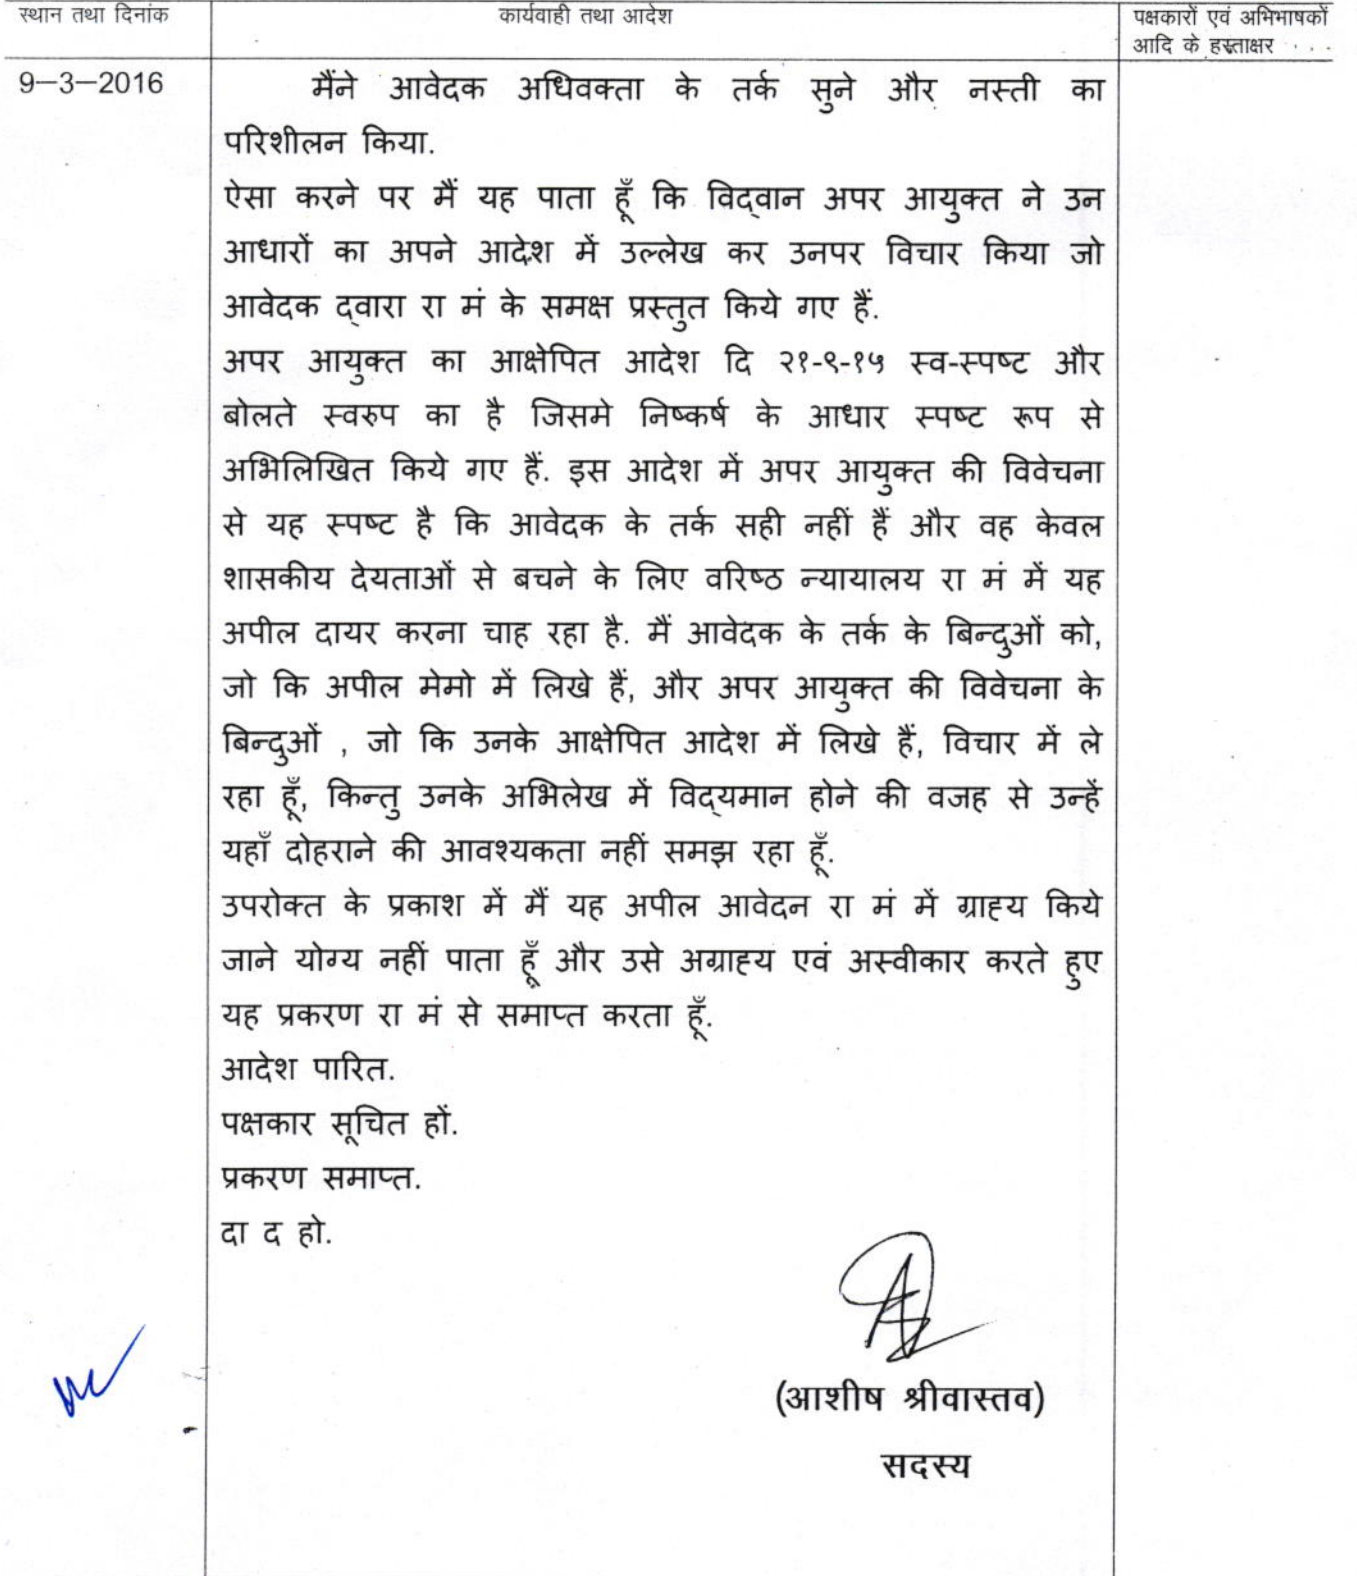 स्थान तथा दिनांक
कार्यवाही तथा आदेश
पक्षकारों एवं अभिभाषकों
आदि के हस्ताक्षर
9-3-2016
मैंने आवेदक अधिवक्ता के तर्क सुने और नस्ती का
परिशीलन किया.
ऐसा करने पर मैं यह पाता हूँ कि विद्वान अपर आयुक्त ने उन
आधारों का अपने आदेश में उल्लेख कर उनपर विचार किया जो
आवेदक द्वारा रा मं के समक्ष प्रस्तुत किये गए हैं.
अपर आयुक्त का आक्षेपित आदेश दि २१-९-१५ स्व-स्पष्ट और
बोलते स्वरुप का है जिसमे निष्कर्ष के आधार स्पष्ट रूप से
अभिलिखित किये गए हैं. इस आदेश में अपर आयुक्त की विवेचना
से यह स्पष्ट है कि आवेदक के तर्क सही नहीं हैं और वह केवल
शासकीय देयताओं से बचने के लिए वरिष्ठ न्यायालय रा मं में यह
अपील दायर करना चाह रहा है. मैं आवेदक के तर्क के बिन्दुओं को,
जो कि अपील मेमो में लिखे हैं, और अपर आयुक्त की विवेचना के
बिन्दुओं , जो कि उनके आक्षेपित आदेश में लिखे हैं, विचार में ले
रहा हूँ, किन्तु उनके अभिलेख में विद्यमान होने की वजह से उन्हें
यहाँ दोहराने की आवश्यकता नहीं समझ रहा हूँ.
उपरोक्त के प्रकाश में मैं यह अपील आवेदन रा मं में ग्राह्य किये
जाने योग्य नहीं पाता हूँ और उसे अग्राह्य एवं अस्वीकार करते हुए
यह प्रकरण रा मं से समाप्त करता हूँ.
आदेश पारित.
पक्षकार सूचित हों.
प्रकरण समाप्त.
दा द हो.
(आशीष श्रीवास्तव)
सदस्य